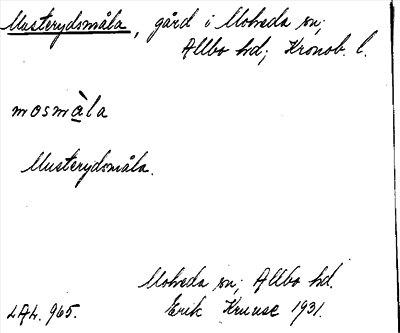 Musterydsmåla, gård i Moheda sn;
Allbo hd; Kronob. l.
mosmàla
Musterydsmåla.
Moheda sn; Allbo hd.
LAL. 965. Erik Kruuse 1931.